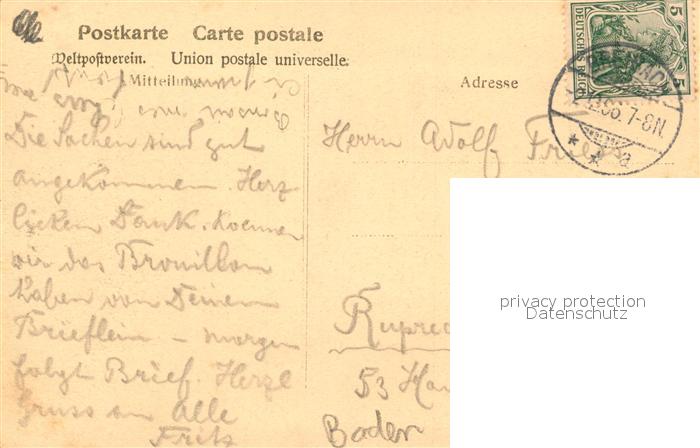 Postkarte Carte postale
Weltpostverein. Union postale universelle.
Mitteilung
Adresse
DEUTSCHES REICH
5 5
7-8N.
* * a
Die Sachen sind gut
angekommen. Herz
lichen Dank. Koennen
wir das Brouillon
haben von Deinem
Brieflein – morgen
folgt Brief. Herzl
Gruss an Alle
Fritz
Herrn Adolf
Ruprec
53 Ha
Baden
privacy protection
Datenschutz